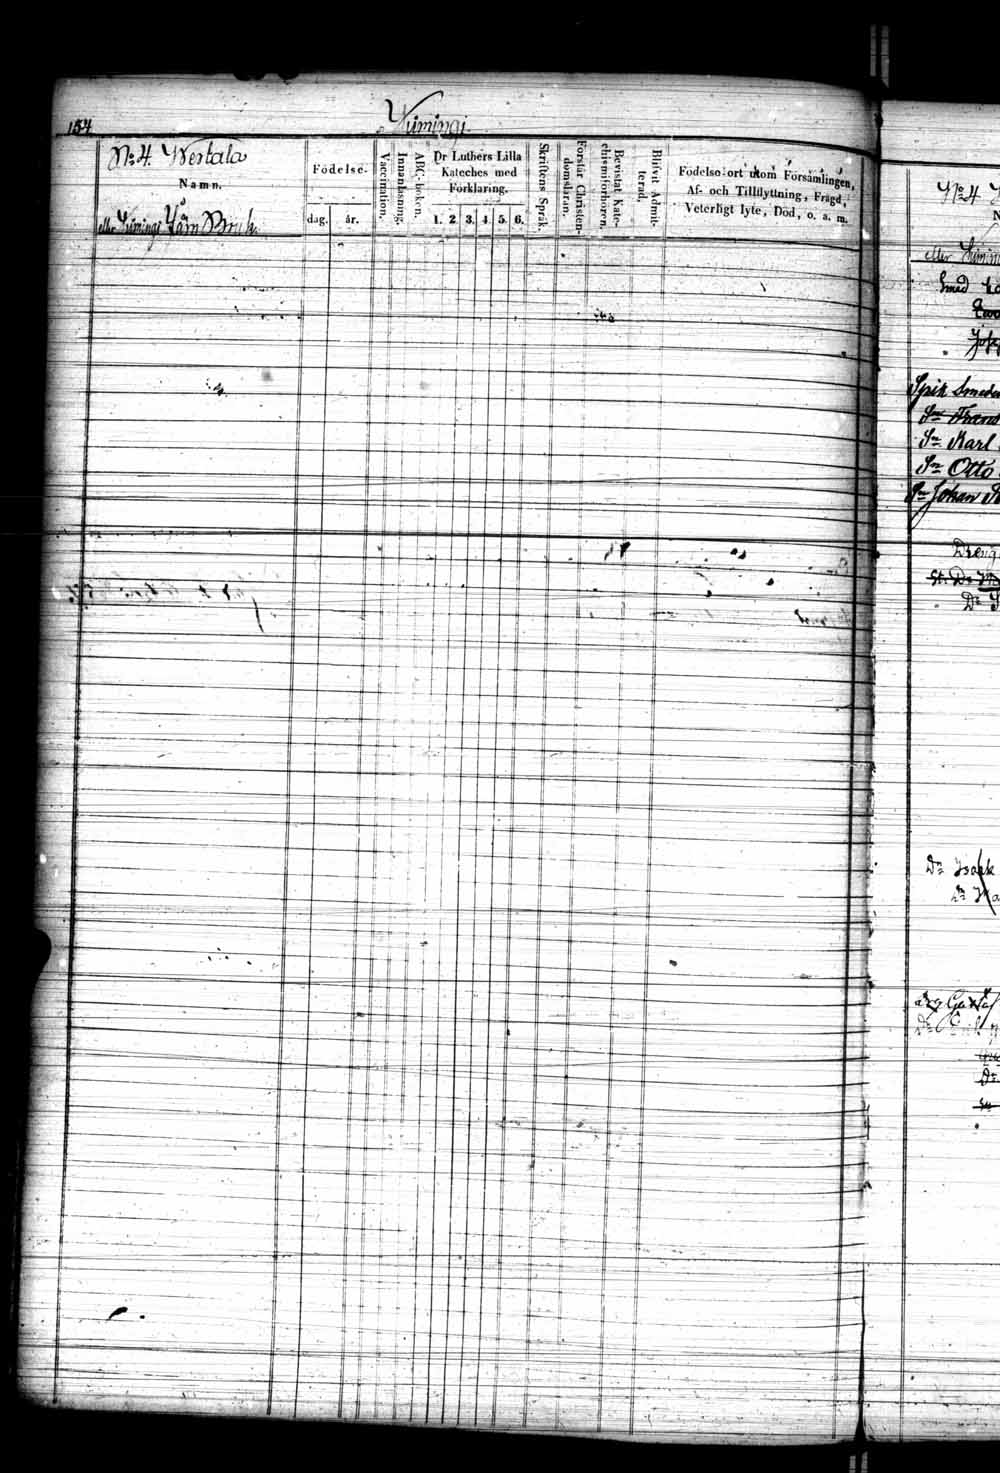 154
Kiimingi
No 4. Westala
Namn.
eller Kiimingi Järn Bruk.
Födelse-
dag.
år.
Vaccination.
Innanläsning.
ABC-boken.
Dr Luthers Lilla
Kateches med
Förklaring.
1. 2. 3. 4. 5. 6.
Skriftens Språk.
Förstår Christen-
domsläran.
Bevistat Kate-
chismiförhören.
Blifvit Admit-
terad.
Födelse-ort utom Församlingen,
Af- och Tillflyttning, Frägd,
Veterligt lyte, Död, o. a. m.
No 4
N
eller
Smed
Spik Smeden
Sn Frans
Sn Karl
Sn Otto
Sn Johan
Dreng
Dr Isaak
Dr
Dr